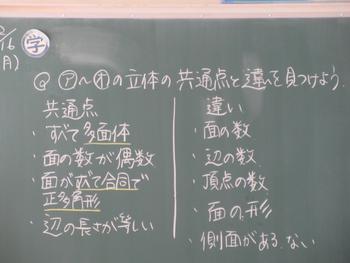 2/16
(月)
学
Q ㋐~㋔の立体の共通点と違いを見つけよう。
共通点
・すべて多面体
・面の数が偶数
・面がすべて合同で
正多角形
・辺の長さが等しい
違い
・面の数
・辺の数
・頂点の数
・面の形
・側面がある、ない